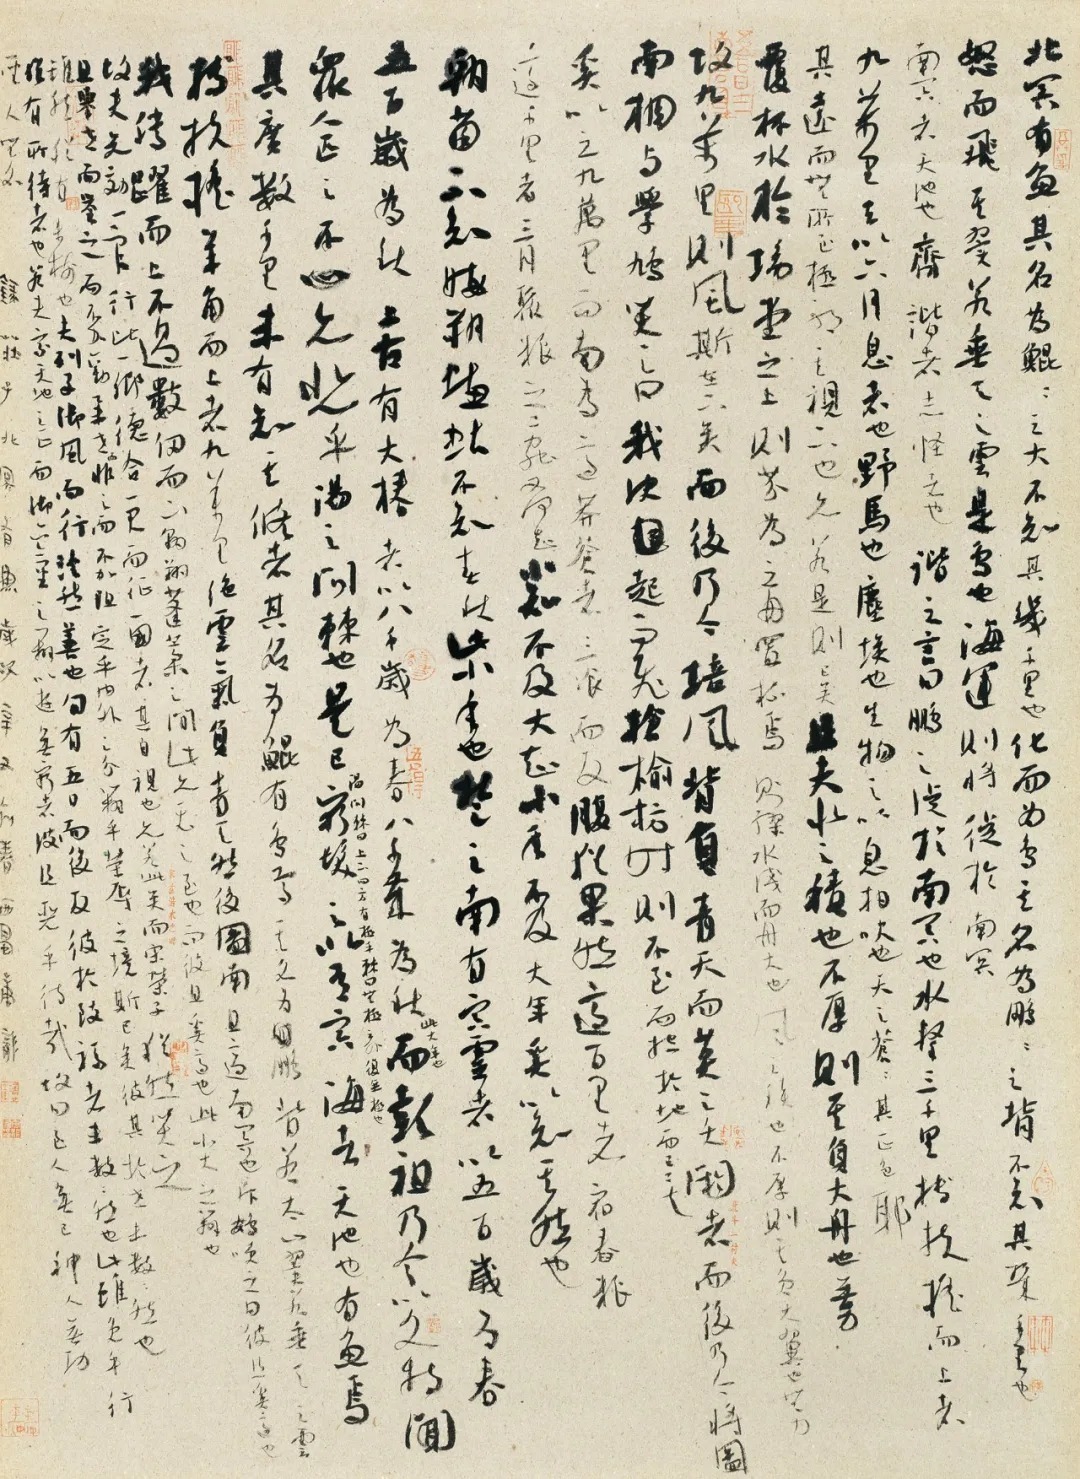 北冥有魚其名為鯤鯤之大不知其幾千里也化而為鳥其名為鵬鵬之背不知其幾千里也
怒而飛其翼若垂天之雲是鳥也海運則將徙於南冥
南冥者天池也齊諧者志怪者也諧之言曰鵬之徙於南冥也水擊三千里摶扶搖而上者
九萬里去以六月息者也野馬也塵埃也生物之以息相吹也天之蒼蒼其正色耶
其遠而無所至極耶其視下也亦若是則已矣且夫水之積也不厚則其負大舟也無力
覆杯水於坳堂之上則芥為之舟置杯焉則膠水淺而舟大也風之積也不厚則其負大翼也無力
故九萬里則風斯在下矣而後乃今培風背負青天而莫之夭閼者而後乃今將圖
南蜩與學鳩笑之曰我決起而飛搶榆枋時則不至而控於地而已矣
奚以之九萬里而南為適莽蒼者三飡而反腹猶果然適百里者宿舂糧
適千里者三月聚糧之二蟲又何知小知不及大知小年不及大年奚以知其然也
朝菌不知晦朔蟪蛄不知春秋此小年也楚之南有冥靈者以五百歲為春
五百歲為秋上古有大椿者以八千歲為春八千歲為秋此大年也而彭祖乃今以久特聞
眾人匹之不亦悲乎湯之問棘也是已窮髮之北有冥海者天池也有魚焉
其廣數千里未有知其修者其名為鯤有鳥焉其名為鵬背若太山翼若垂天之雲
摶扶搖羊角而上者九萬里絕雲氣負青天然後圖南且適南冥也斥鴳笑之曰彼且奚適也
我騰躍而上不過數仞而下翱翔蓬蒿之間此亦飛之至也而彼且奚適也此小大之辯也
故夫知效一官行比一鄉德合一君而徵一國者其自視也亦若此矣而宋榮子猶然笑之
且舉世而譽之而不加勸舉世非之而不加沮定乎內外之分辯乎榮辱之境斯已矣彼其於世未數數然也
雖然猶有未樹也夫列子御風而行泠然善也旬有五日而後反彼於致福者未數數然也此雖免乎行
猶有所待者也若夫乘天地之正而御六氣之辯以遊無窮者彼且惡乎待哉故曰至人無己神人無功
聖人無名